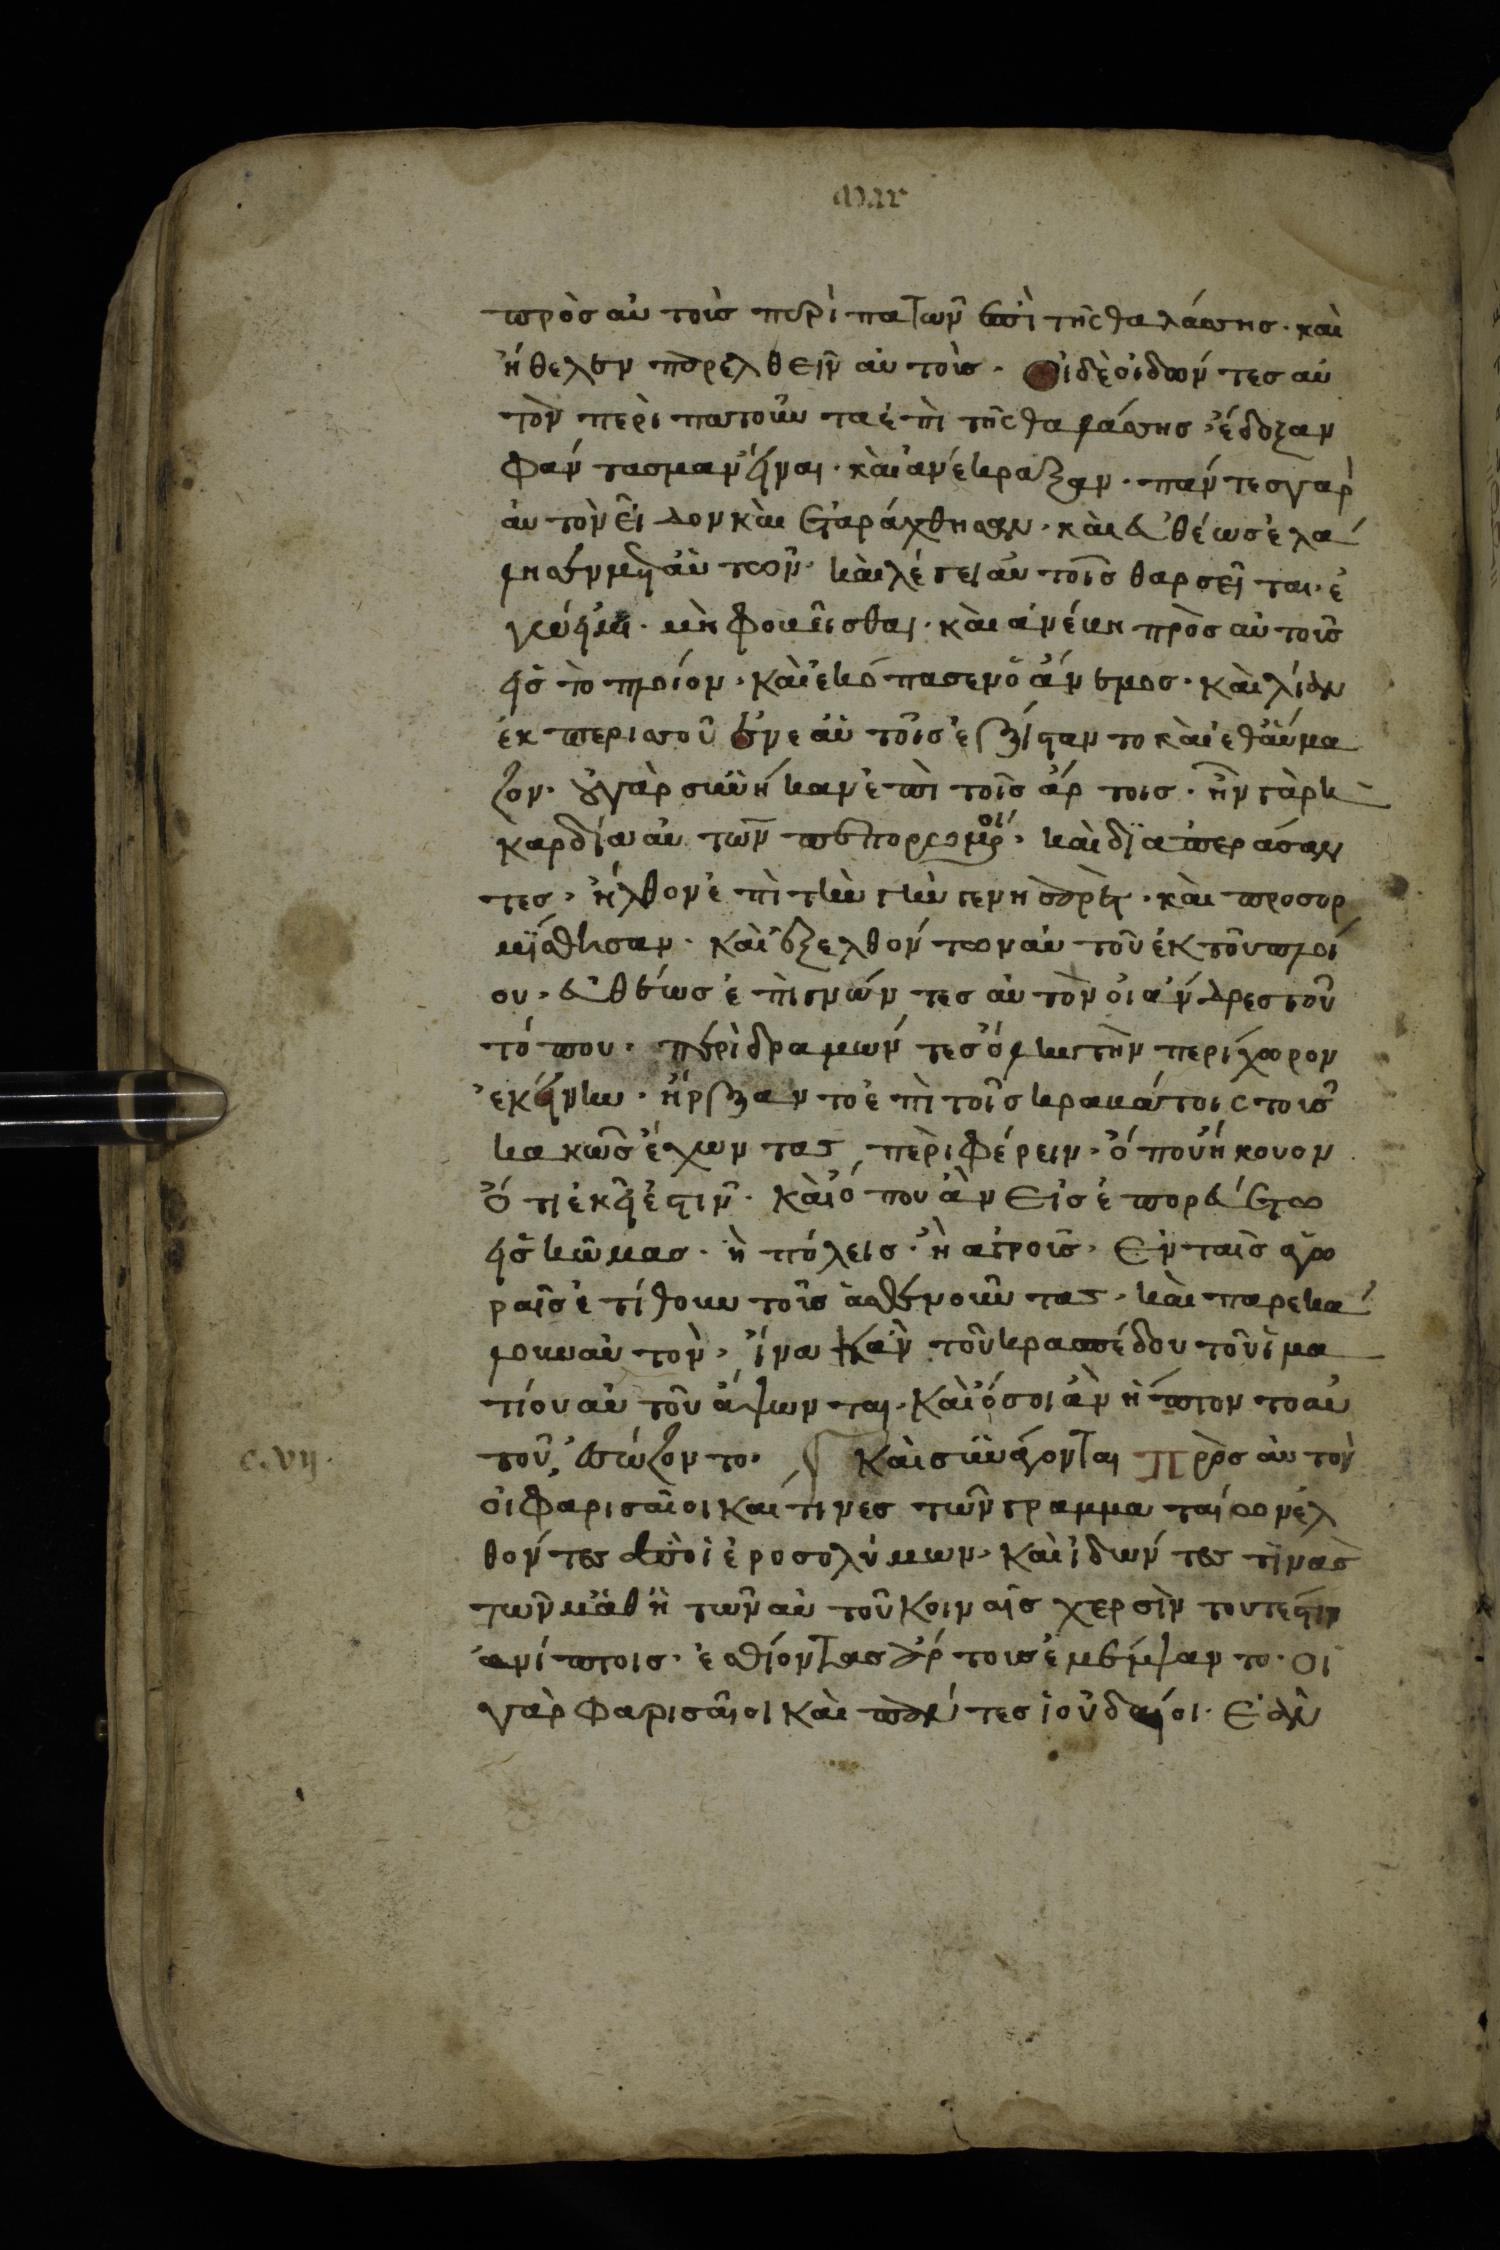 Mar
πρὸσ αὐ τοὶσ περὶ πατῶν ἐπὶ τῆς θα λάσσησ · καὶ
ήθελεν παρελθεῖν αὐ τοὶσ · οἱδὲ ἰδών τεσ αὐ
τὸν περὶ πατοῦν τα ἐπὶ τῆς θα λάσσησ, ἔδοξαν
φάν τασμαν εἶναι · καὶ ανέκραξαν · πάν τεσγαρ
αὐ τὸν εἶδον καὶ ἐταράχθησαν · καὶ εὐθέωσ ἐλά
λησεν με αὐ τῶν · καὶ λέγει αὐ τοῖσ θαρσεῖ ται · ἐ
γώ εἰμι · μὴ φοβεῖσθαι · καὶ ἀνέβη πρὸσ αὐ τοῖσ
εἰσ τὸ πλοίον · καὶ ἐκόπασεν ὁ ἄν εμοσ · καὶ λίαν
ἐκ περισσοῦ ἐν ε αὐ τοῖσ ἐξίσταν το καὶ ἐθαύμα
ζον · οὐ γὰρ συνήκαν ἐπὶ τοῖσ ἄρ τοισ · ἦν γὰρ ἡ
καρδία αὐ τῶν πεπορωμένοι · καὶ διαπεράσαν
τεσ · ἦλθον ἐπὶ τὴν γὴν γενησαρὲτ · καὶ προσορ
μίσθησαν · καὶ ἐξελθόν των αὐ τοῦ ἐκ τοῦ πλοί
ου · εὐθέωσ ἐπὶγνών τεσ αὐ τὸν οἱ ἄνδρεσ τοῦ
τόπου · περὶδραμών τεσ ὅλην τὴν περίχωρον
ἐκείνην · ἤρξαν το ἐπὶ τοῖσ κραβάτοις τοισ
κακῶσ ἔχων τασ περὶφέρειν · ὅπου ἤκουον
ὅ τι ἐκεῖ ἐστιν · καὶ ὅπου ἂν εἰσὲπορεύετω
εἰσ κώμασ · ἢ πόλεισ · ἢ αγροῖσ · ἐν ταῖσ αγω
ραῖσ ἐτίθουν τοῖσ ἀσθένοῦν τασ · καὶ παρεκά
λουν αὐ τὸν · ἵνα κἂν τοῦ κρασπέδου τοῦ ἱμα
τίου αὐ τοῦ ἅψων ται · καὶ ὅσοι ἂν ἥπτον το αὐ
τοῦ, ἐσώζον το · Καὶ συνάγονται πρὸσ αὐ τὸν
c. vij.
οἱ φαρισαῖοι και τινεσ τῶν γραμμα ταίων ἐλ
θόν τεσ ἀπὸ ἱεροσολύμων · καὶ ἰδών τεσ τινὰσ
τῶν μαθη τῶν αὐ τοῦ κοιναῖσ χερσὶν τουτέστιν
ανίπτοισ · ἐσθίοντασ ἄρ τουσ ἐμέμψαν το · οἱ
γὰρ φαρισαῖοι καὶ πάν τεσ ἰουδαίοι · ἐὰν